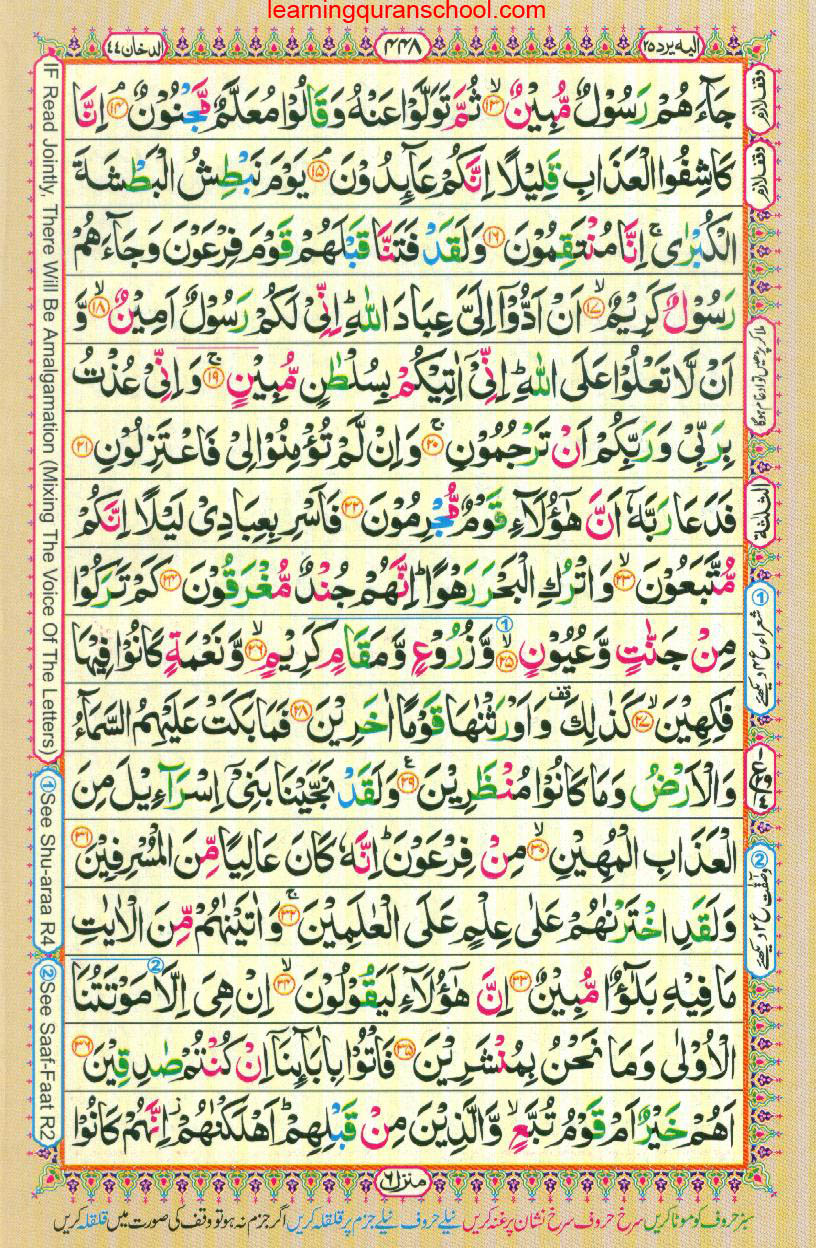 learningquranschool.com
الدخان ٤٤
٤٤٨
اليه يرد ٢٥
جَآءَهُمْ رَسُوْلٌ مُّبِيْنٌ ۙ﴿۱۳﴾ ثُمَّ تَوَلَّوْا عَنْهُ وَقَالُوْا مُعَلَّمٌ مَّجْنُوْنٌ ۘ﴿۱۴﴾ اِنَّا
كَاشِفُوا الْعَذَابِ قَلِيْلًا اِنَّكُمْ عَآئِدُوْنَ ۘ﴿۱۵﴾ يَوْمَ نَبْطِشُ الْبَطْشَةَ
الْكُبْرٰى ۚ اِنَّا مُنْتَقِمُوْنَ ﴿۱۶﴾ وَلَقَدْ فَتَنَّا قَبْلَهُمْ قَوْمَ فِرْعَوْنَ وَجَآءَهُمْ
رَسُوْلٌ كَرِيْمٌ ۙ﴿۱۷﴾ اَنْ اَدُّوْۤا اِلَيَّ عِبَادَ اللّٰهِ ؕ اِنِّىْ لَكُمْ رَسُوْلٌ اَمِيْنٌ ۙ﴿۱۸﴾ وَّ
اَنْ لَّا تَعْلُوْا عَلَى اللّٰهِ ؕ اِنِّىْۤ اٰتِيْكُمْ بِسُلْطٰنٍ مُّبِيْنٍ ۚ﴿۱۹﴾ وَاِنِّىْ عُذْتُ
بِرَبِّىْ وَرَبِّكُمْ اَنْ تَرْجُمُوْنِ ۚ﴿۲۰﴾ وَاِنْ لَّمْ تُؤْمِنُوْا لِىْ فَاعْتَزِلُوْنِ ﴿۲۱﴾
فَدَعَا رَبَّهٗۤ اَنَّ هٰٓؤُلَآءِ قَوْمٌ مُّجْرِمُوْنَ ﴿۲۲﴾ فَاَسْرِ بِعِبَادِىْ لَيْلًا اِنَّكُمْ
مُّتَّبَعُوْنَ ۙ﴿۲۳﴾ وَاتْرُكِ الْبَحْرَ رَهْوًا ؕ اِنَّهُمْ جُنْدٌ مُّغْرَقُوْنَ ﴿۲۴﴾ كَمْ تَرَكُوْا
مِنْ جَنّٰتٍ وَّعُيُوْنٍ ۙ﴿۲۵﴾ وَّزُرُوْعٍ وَّمَقَامٍ كَرِيْمٍ ۙ﴿۲۶﴾ وَّنَعْمَةٍ كَانُوْا فِيْهَا
فٰكِهِيْنَ ۙ﴿۲۷﴾ كَذٰلِكَ وَاَوْرَثْنٰهَا قَوْمًا اٰخَرِيْنَ ﴿۲۸﴾ فَمَا بَكَتْ عَلَيْهِمُ السَّمَآءُ
وَالْاَرْضُ وَمَا كَانُوْا مُنْظَرِيْنَ ﴿۲۹﴾ وَلَقَدْ نَجَّيْنَا بَنِىْۤ اِسْرَآءِيْلَ مِنَ
الْعَذَابِ الْمُهِيْنِ ۙ﴿۳۰﴾ مِنْ فِرْعَوْنَ ؕ اِنَّهٗ كَانَ عَالِيًا مِّنَ الْمُسْرِفِيْنَ ﴿۳۱﴾
وَلَقَدِ اخْتَرْنٰهُمْ عَلٰى عِلْمٍ عَلَى الْعٰلَمِيْنَ ۚ﴿۳۲﴾ وَاٰتَيْنٰهُمْ مِّنَ الْاٰيٰتِ
مَا فِيْهِ بَلٰٓؤٌا مُّبِيْنٌ ﴿۳۳﴾ اِنَّ هٰٓؤُلَآءِ لَيَقُوْلُوْنَ ۙ﴿۳۴﴾ اِنْ هِىَ اِلَّا مَوْتَتُنَا
الْاُوْلٰى وَمَا نَحْنُ بِمُنْشَرِيْنَ ﴿۳۵﴾ فَاْتُوْا بِاٰبَآئِنَاۤ اِنْ كُنْتُمْ صٰدِقِيْنَ ﴿۳۶﴾
اَهُمْ خَيْرٌ اَمْ قَوْمُ تُبَّعٍ ۙ وَّالَّذِيْنَ مِنْ قَبْلِهِمْ ؕ اَهْلَكْنٰهُمْ ؗ اِنَّهُمْ كَانُوْا
وقف لازم
وقف لازم
ملا کر پڑھیں تو ادغام ہوگا
الثلثة
① شعراء ع ۴ دیکھئے
② وصٰفٰت ع ۲ دیکھئے
IF Read Jointly, There Will Be Amalgamation (Mixing The Voice Of The Letters)
①See Shu-araa R4
②See Saaf-Faat R2
منزل ٦
سبز حروف کو موٹا کریں سرخ حروف سرخ نشان پر غنہ کریں نیلے حروف نیلے جزم پر قلقلہ کریں اگر جزم نہ ہو تو وقف کی صورت میں قلقلہ کریں